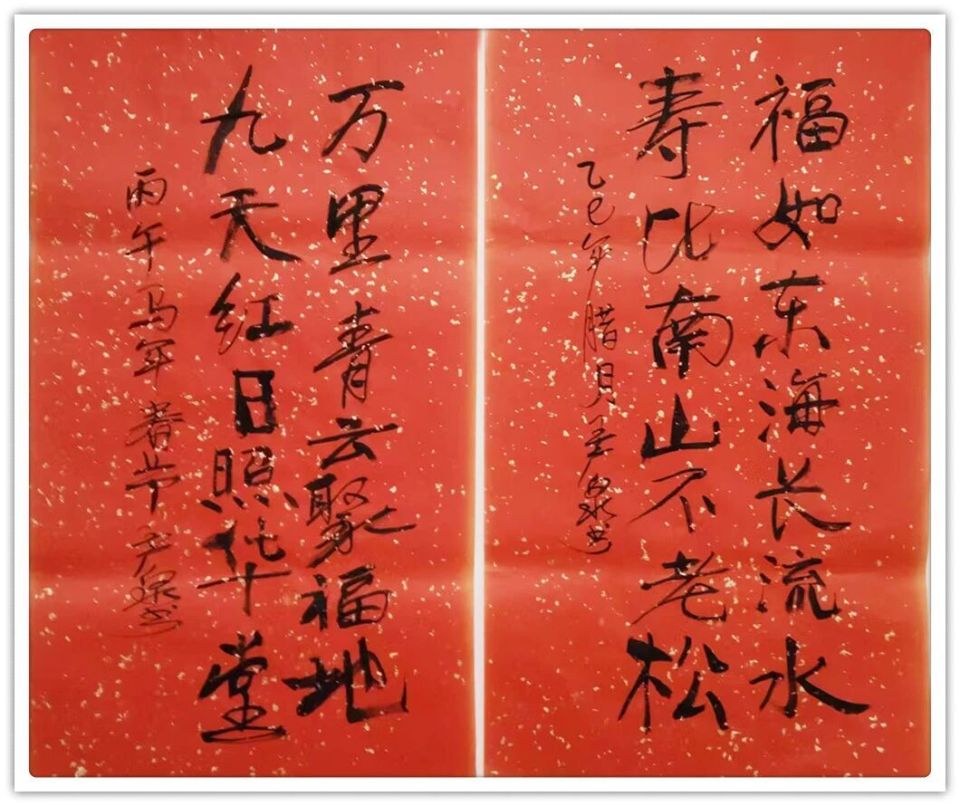 福如东海长流水
寿比南山不老松
乙巳年腊月王广泉书
万里青云聚福地
九天红日照华堂
丙午马年春节王广泉书